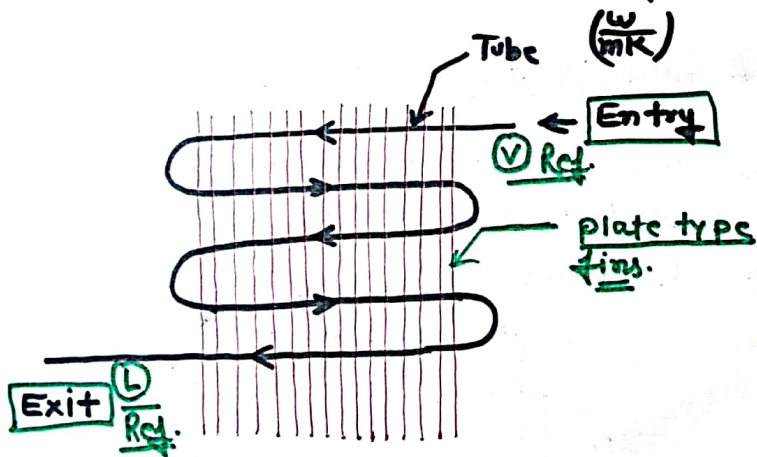 Tube
(w/mK)
Entry
V Ref.
plate type
fins.
L
Exit
Ref.